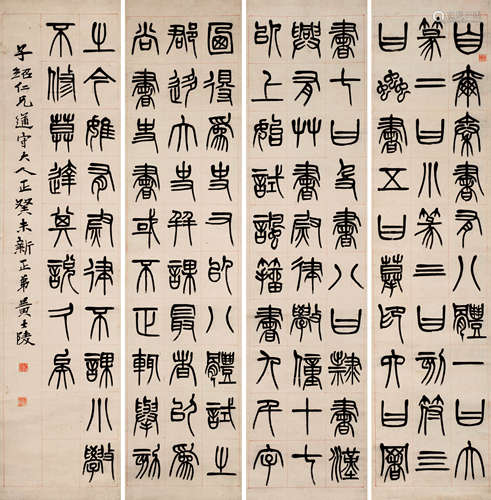 自爾秦書有八體一曰大
篆二曰小篆三曰刻符四
曰蟲書五曰摹印六曰署
書七曰殳書八曰隸書漢
興有艸書尉律學僮十七
已上始試諷籀書九千字
得為史又以八體試之
郡移大史并課最者以為
尚書史書或不正輒舉劾
之今雖有尉律不課小學
不修莫達其說久矣
子紹仁兄道守大人正癸未新正弟黃士陵